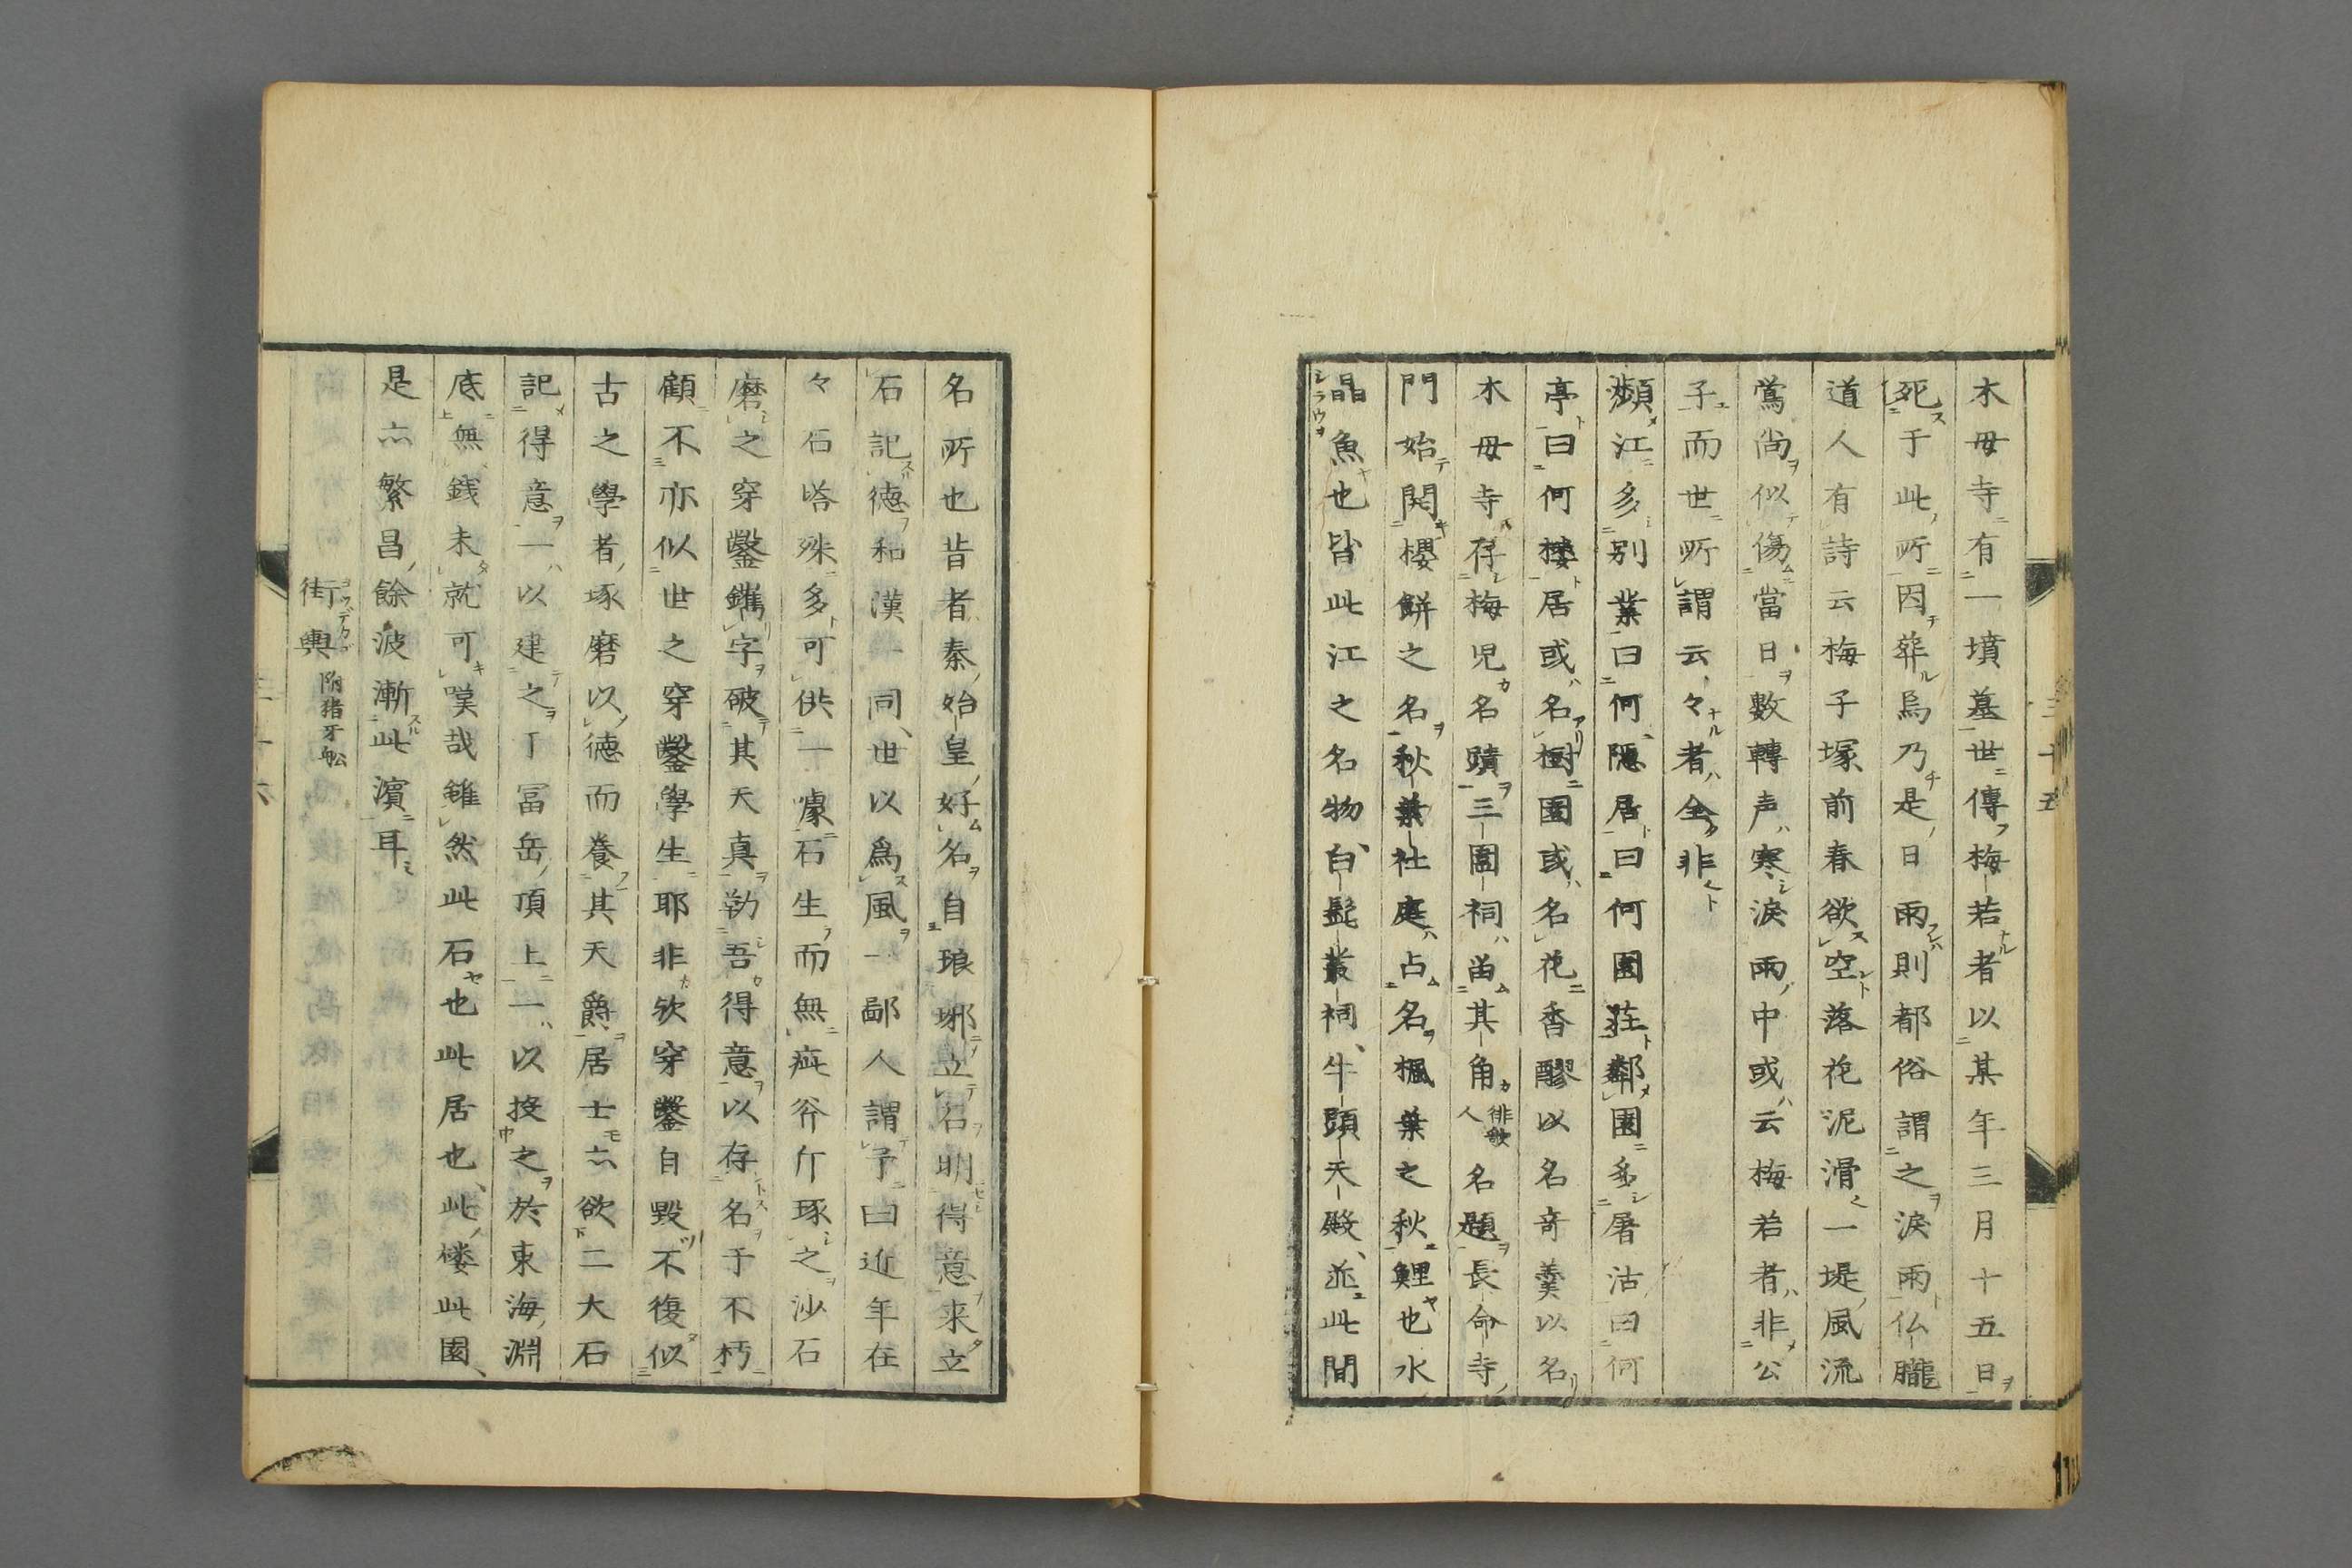 木母寺有一墳墓世傳梅若者以某年三月十五日
死于此所因葬烏乃是日雨則都俗謂之淚雨仏朧
道人有詩云梅子塚前春欲空落花泥滑一堤風流
鶯尚似傷當日數轉声寒淚雨中或云梅若者非公
子而世所謂云々者全非
瀕江多別業曰何隱居曰何園荘鄰園多屠沽曰何
亭曰何楼居或名樹園或名花香醪以名奇羹以名
木母寺存梅児名蹟三圍祠留其角俳歌人名題長命寺
門始開櫻餅之名秋葉社庭占名楓葉之秋鯉也水
晶魚也皆此江之名物白髭叢祠牛頭天殿並此間
三十五
名所也昔者秦始皇好名自琅琊立石明得意来立
石記徳和漢一同世以爲風一鄙人謂予曰近年在
々石塔殊多可供一慮石生而無疵斧斤琢之沙石
磨之穿鑿鐫字破其天真勒吾得意以存名于不朽
顧不亦似世之穿鑿學生耶非欤穿鑿自毀不復似
古之學者琢磨以徳而養其天爵居士亦欲二大石
記得意一以建之于冨岳頂上一以投之於東海淵
底無銭未就可嘆哉雖然此石也此居也此楼此園
是亦繁昌餘波漸此濱耳
街輿 附猪牙舩
三十六